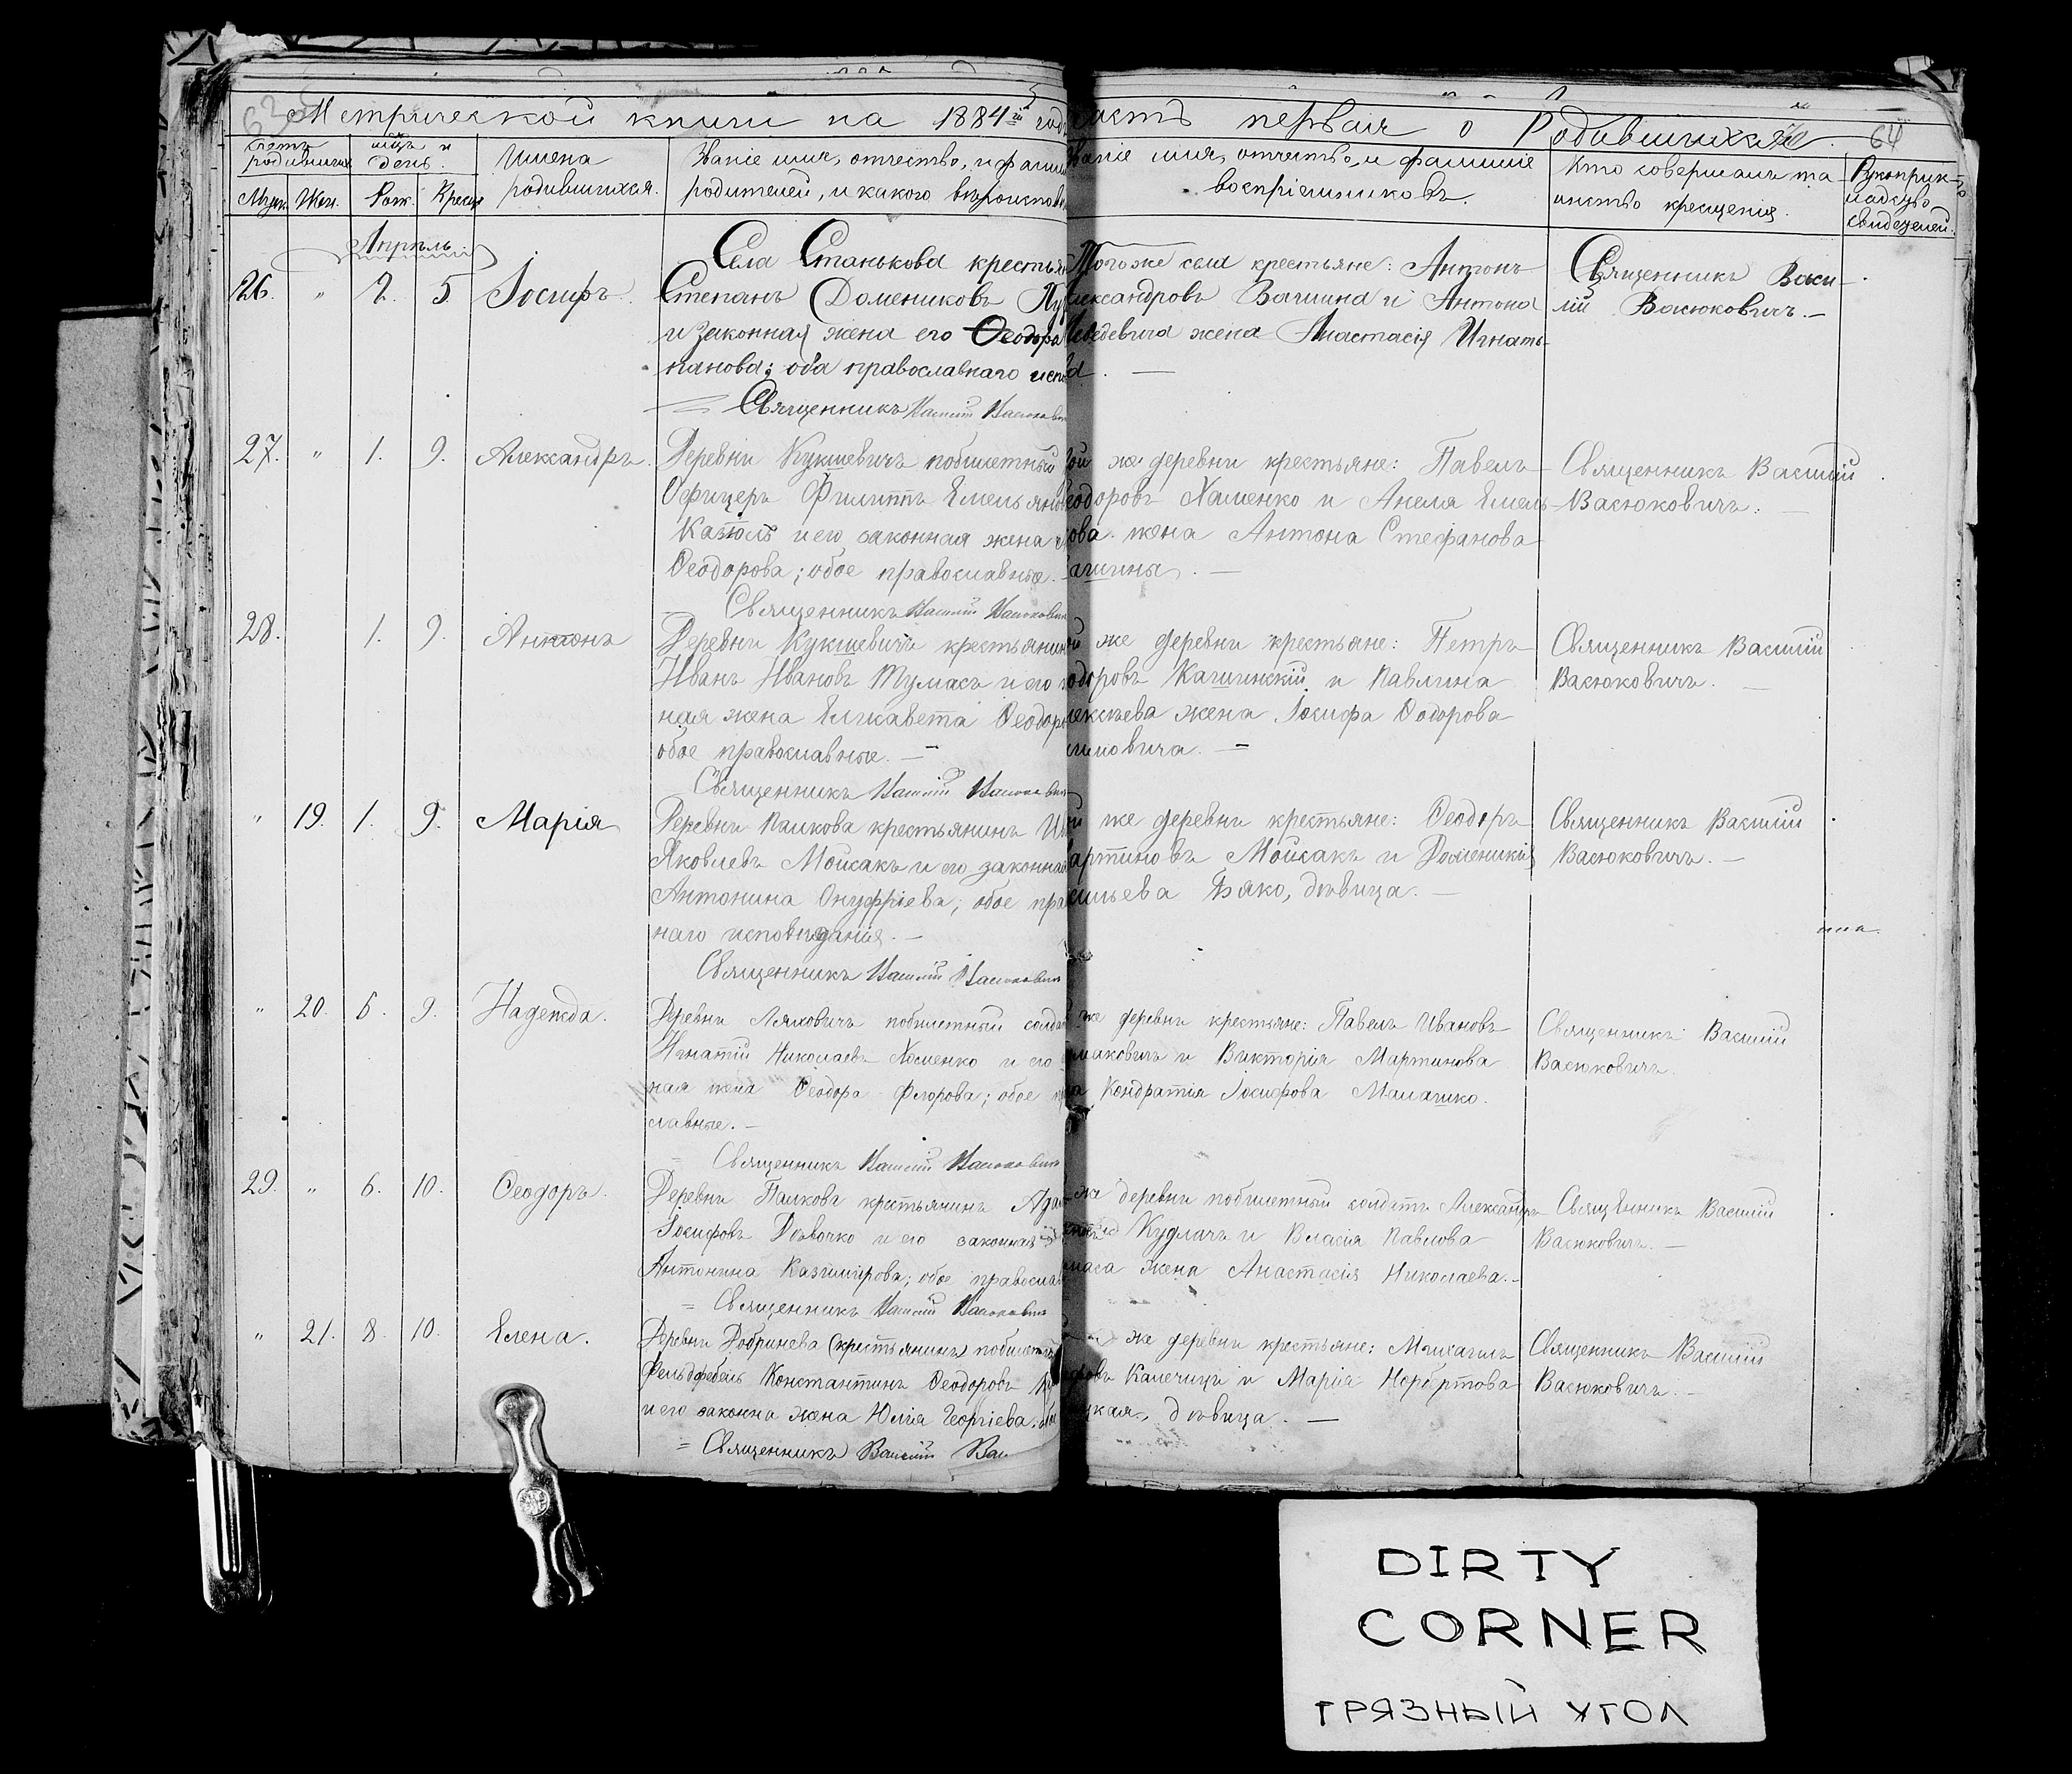 Метрической книги на 1884й годъ
часть первая о Родившихся.
64
Счетъ родившихся
мсцъ и день.
Муж. Жен. Рож. Крещ.
Имена родившихся.
Званіе имя, отчество, и фамилія
родителей, и какого вѣроисповѣ
Званіе имя, отчество, и фамилія
воспріемниковъ.
Кто совершалъ та-
инство крещенія.
Рукоприк-
ладство
свидетелей.
Апрѣль
26. " 2. 5 Іосифъ.
Села Станькова крестьян
Степанъ Домениковъ
и законная жена его Ѳеодора
панова; оба православнаго испо
Священникъ Василій Васюкович
Того же села крестьяне: Антонъ
Александровъ Вашина и Антона
жена Анастасія Игнать-
Священникъ Васи-
лій Васюковичъ. —
27. " 1. 9. Александръ.
Деревни Кукшевичъ побилетный
Офицеръ Филиппъ Емельянов
и его законная жена
Ѳеодорова; обое православные. —
Священникъ Василій Васюкович
той же деревни крестьяне: Павелъ
Ѳеодоровъ Хоменко и Анеля Емель-
ова жена Антона Стефанова
Священникъ Василій
Васюковичъ.
28. 1. 9. Антонъ
Деревни Кукшевичъ крестьянин
Иванъ Ивановъ Тумасъ и его
ная жена Елисавета Ѳеодор
обое православные. —
Священникъ Василій Васюкович
же деревни крестьяне: Петръ
одоровъ Кашинскій и Павлина
лексѣева жена Іосифа Ѳодорова
мовича. —
Священникъ Василій
Васюковичъ. —
" 19. 1. 9. Марія
Деревни Палкова крестьянинъ
Яковлевъ Мойсакъ и его законная
Антонина Онуфріева; обое пра
наго исповѣданія. —
Священникъ Василій Васюкович
же деревни крестьяне: Ѳеодоръ
артиновъ Мойсакъ и Доменикія
сильева Бяко, дѣвица. —
Священникъ Василій
Васюковичъ. —
" 20. 6. 9. Надежда.
Деревни Ляховичъ побилетный солда
Игнатій Николаевъ Хоменко и его
ная жена Ѳеодора Ѳедорова; обое
славные. —
Священникъ Василій Васюкович
же деревни крестьяне: Павелъ Ивановъ
и Викторія Мартинова
Кондратія Іосифова Малашко.
Священникъ Василій
Васюковичъ.
29. " 6. 10. Ѳеодоръ.
Деревни Палковъ крестьянинъ Адам
Іосифовъ Дѣвочко и его законная
Антонина Казимірова; обое православ
Священникъ Василій Васюкович
же деревни побилетный солдатъ Александръ
Кудлачъ и Власія Павлова
маса жена Анастасія Николаева. —
Священникъ Василій
Васюковичъ. —
" 21. 8. 10. Елена.
Деревни Добринева (крестьянинъ) побилетный
Фельдфебель Константинъ Ѳеодоровъ
и его законна жена Юлія Георгіева.
Священникъ Василій Вас
же деревни крестьяне: Михаилъ
Калечицъ и Марія Норбертова
цкая, дѣвица. —
Священникъ Василій
Васюковичъ. —
DIRTY
CORNER
ГРЯЗНЫЙ УГОЛ